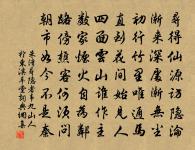 尋得仙源訪隱淪
漸來深處漸無塵
初行竹里唯通馬
直到花間始見人
四面雲山誰作主
數家煙火自為鄰
路傍樵客何須問
朝市如今不是秦
朱灣尋隱者韋九山人
於東溪草堂